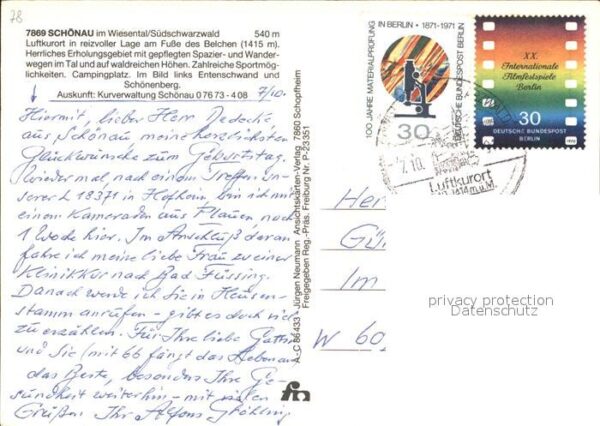 78
7869 SCHÖNAU im Wiesental/Südschwarzwald 540 m
Luftkurort in reizvoller Lage am Fuße des Belchen (1415 m).
Herrliches Erholungsgebiet mit gepflegten Spazier- und Wander-
wegen im Tal und auf waldreichen Höhen. Zahlreiche Sportmög-
lichkeiten. Campingplatz. Im Bild links Entenschwand und
Schönenberg.
Auskunft: Kurverwaltung Schönau 0 76 73 - 4 08
7/10.
Hiermit, lieber Herr Dedecke
aus Schönau meine herzlichsten
Glückwünsche zum Geburtstag.
Wieder mal, nach einem Treffen un-
serer L 18371 in Hofheim, bin ich mit
einem Kameraden aus Plauen noch
1 Woche hier. Im Anschluß daran
fahre ich meine liebe Frau zu einer
Klinikkur nach Bad Füssing.
Danach werde ich Sie in Heusen-
stamm anrufen - gibt es doch viel
zu erzählen. Für Ihre liebe Gattin
und Sie (mit 66 fängt das Leben an
das Beste, besonders Ihre Ge-
sundheit weiterhin - mit vielen
Grüßen Ihr Alfons
A.-C 86 433 · Jürgen Neumann Ansichtskarten-Verlag 7860 Schopfheim
Freigegeben Reg.-Präs. Freiburg Nr. P-23 351
100 JAHRE MATERIALPRÜFUNG IN BERLIN · 1871-1971
DEUTSCHE BUNDESPOST BERLIN
30
XX.
Internationale
Filmfestspiele
Berlin
30
DEUTSCHE BUNDESPOST
BERLIN
7.10.
Luftkurort
Her
Gü
Im
W 60
privacy protection
Datenschutz